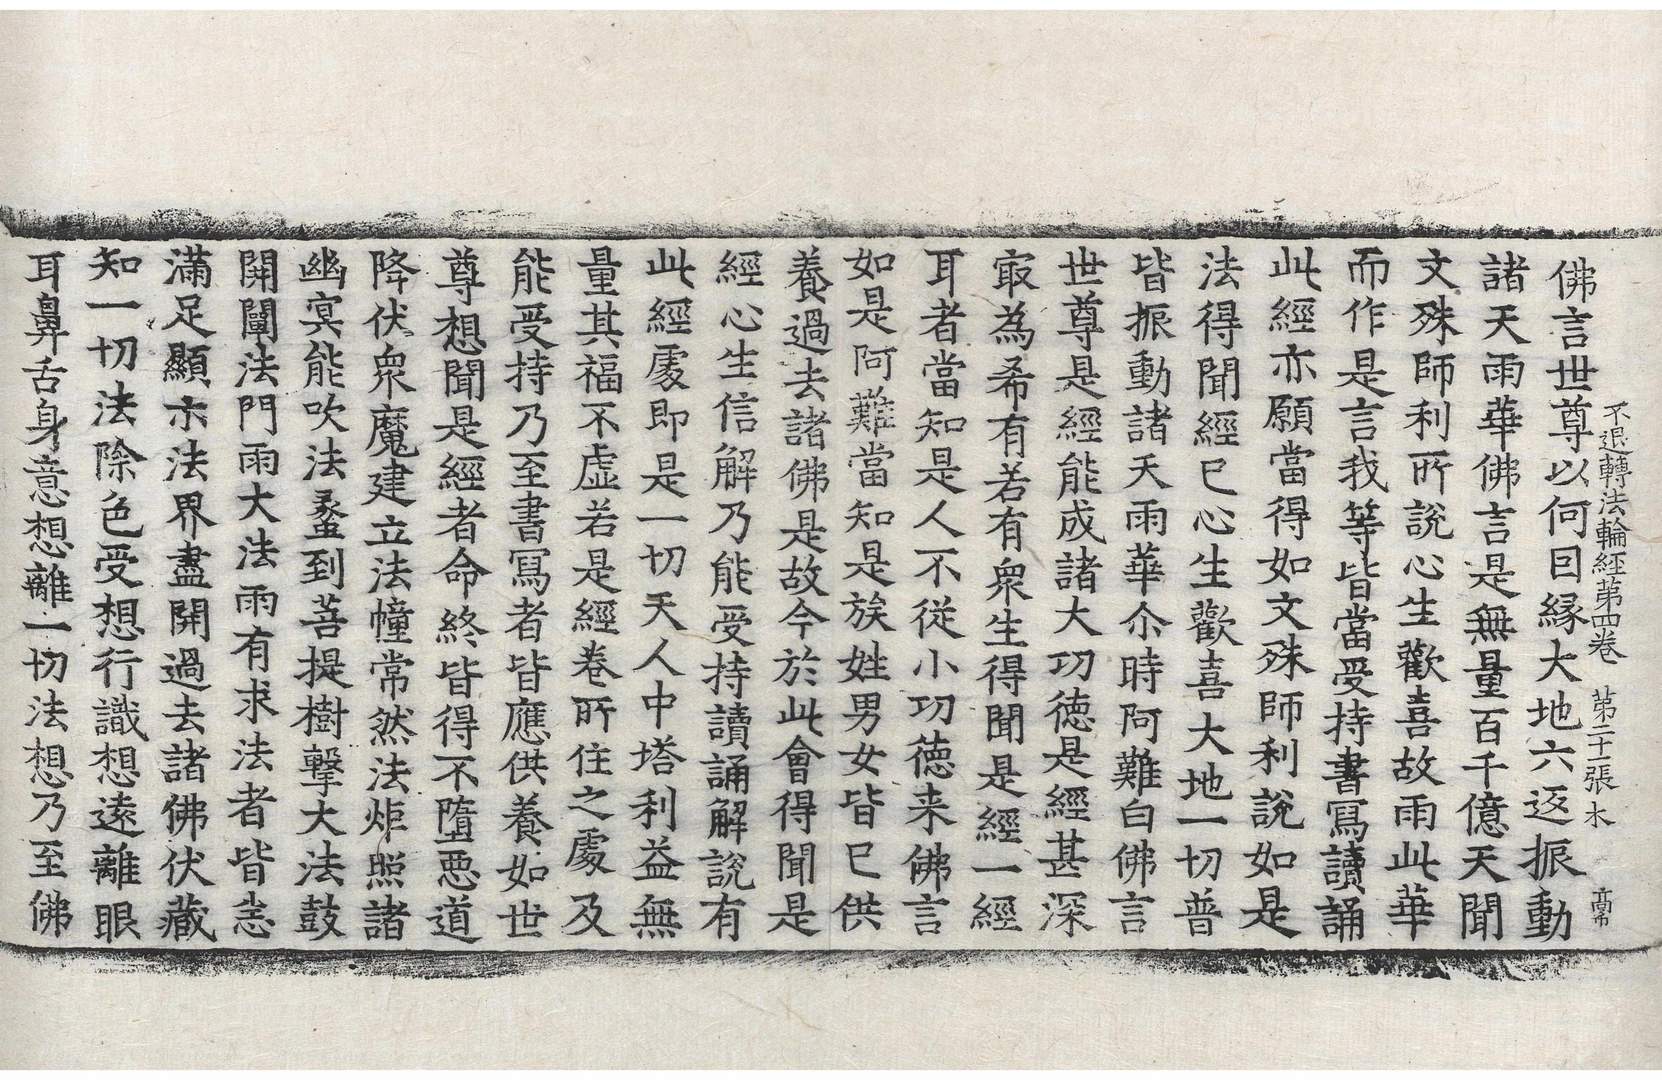 不退轉法輪經第四卷　第二十一張　木
佛言世尊以何因緣大地六返振動
諸天雨華佛言是無量百千億天聞
文殊師利所說心生歡喜故雨此華
而作是言我等皆當受持書寫讀誦
此經亦願當得如文殊師利說如是
法得聞經已心生歡喜大地一切普
皆振動諸天雨華尒時阿難白佛言
世尊是經能成諸大功德是經甚深
㝡為希有若有衆生得聞是經一經
耳者當知是人不從小功德来佛言
如是阿難當知是族姓男女皆已供
養過去諸佛是故今於此會得聞是
經心生信解乃能受持讀誦解說有
此經處即是一切天人中塔利益無
量其福不虛若是經卷所住之處及
能受持乃至書寫者皆應供養如世
尊想聞是經者命終皆得不墮惡道
降伏衆魔建立法幢常然法炬照諸
幽冥能吹法蠡到菩提樹擊大法鼓
開闡法門雨大法雨有求法者皆悉
滿足顯示法界盡開過去諸佛伏藏
知一切法除色受想行識想遠離眼
耳鼻舌身意想離一切法想乃至佛